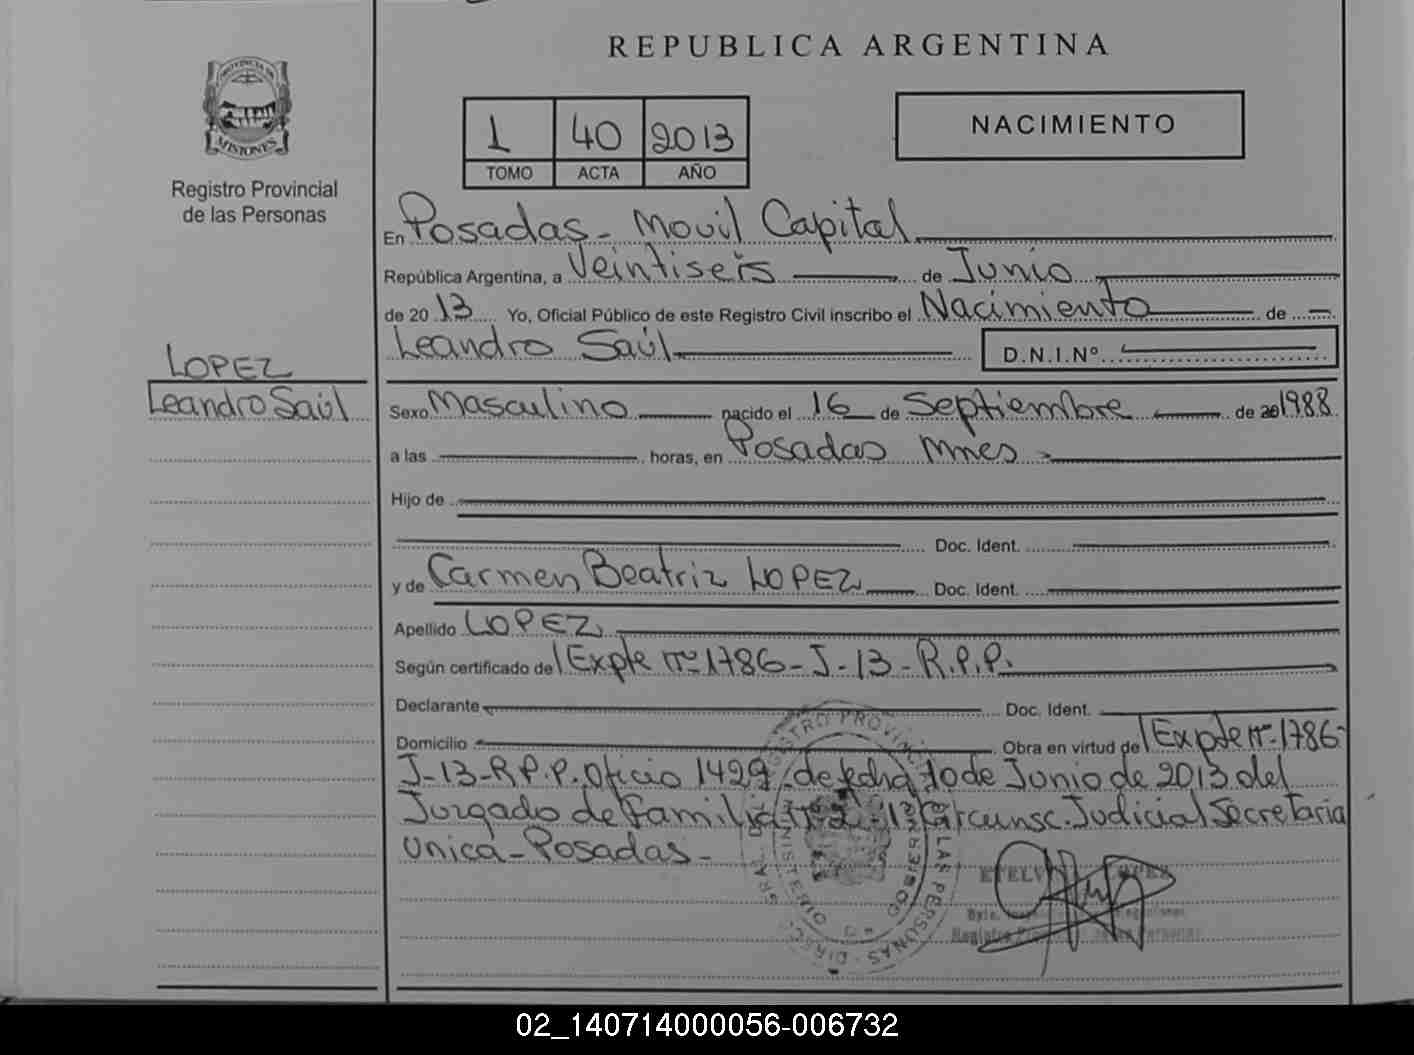 REPUBLICA ARGENTINA
PROVINCIA DE
MISIONES
Registro Provincial
de las Personas
1 40 2013
TOMO ACTA AÑO
NACIMIENTO
En Posadas - Movil Capital
República Argentina, a Veintiseis de Junio
de 20 13 Yo, Oficial Público de este Registro Civil inscribo el Nacimiento de
Leandro Saúl D.N.I.Nº
LOPEZ
Leandro Saúl
Sexo Masculino nacido el 16 de Septiembre de 1988
a las horas, en Posadas Mnes
Hijo de
Doc. Ident.
y de Carmen Beatriz LOPEZ Doc. Ident.
Apellido LOPEZ
Según certificado de Expte nº 1786-J-13-R.P.P.
Declarante Doc. Ident.
Domicilio Obra en virtud de Expte nº 1786-
J-13-R.P.P. Oficio 1429 de fecha 10 de Junio de 2013 del
Juzgado de Familia Circunsc. Judicial Secretaria
Unica - Posadas -
LAS PERSONAS
02_140714000056-006732